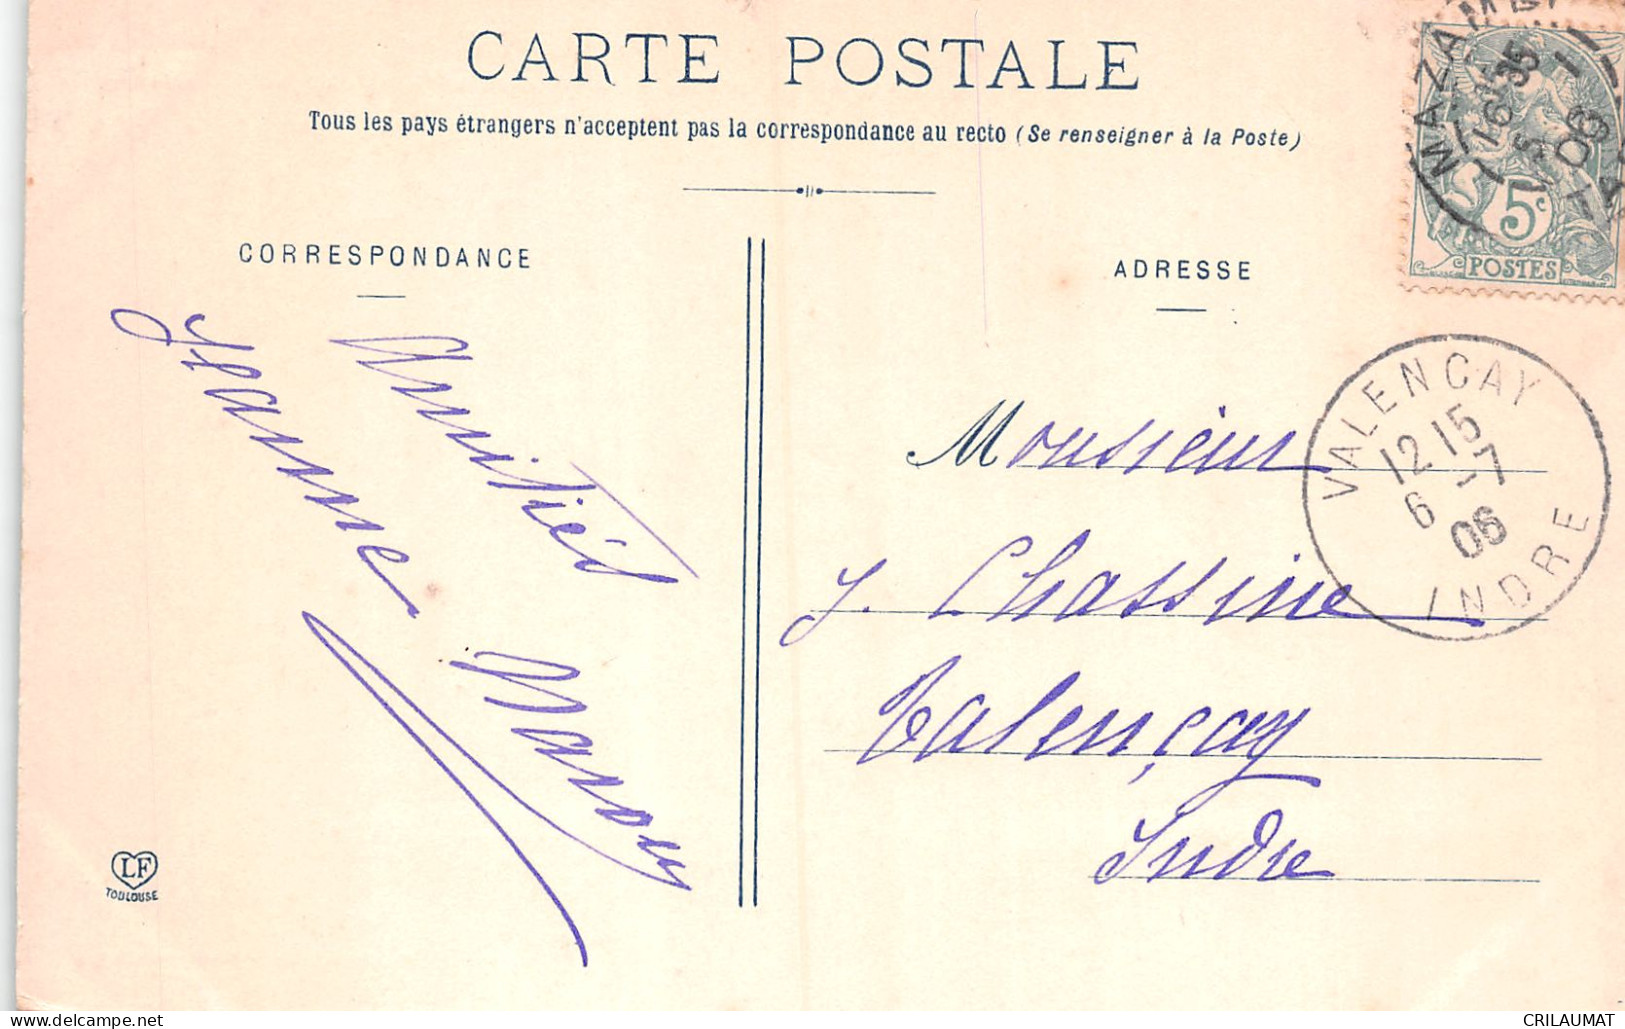 CARTE POSTALE
Tous les pays étrangers n'acceptent pas la correspondance au recto (Se renseigner à la Poste)
CORRESPONDANCE
ADRESSE
Amitiés
Jeanne
Monsieur
J. Chassine
Valençay
Indre
MAZAM
16 35
5
06
5c
POSTES
VALENCAY
12 15
6 -7
06
INDRE
LF
TOULOUSE
CRILAUMAT